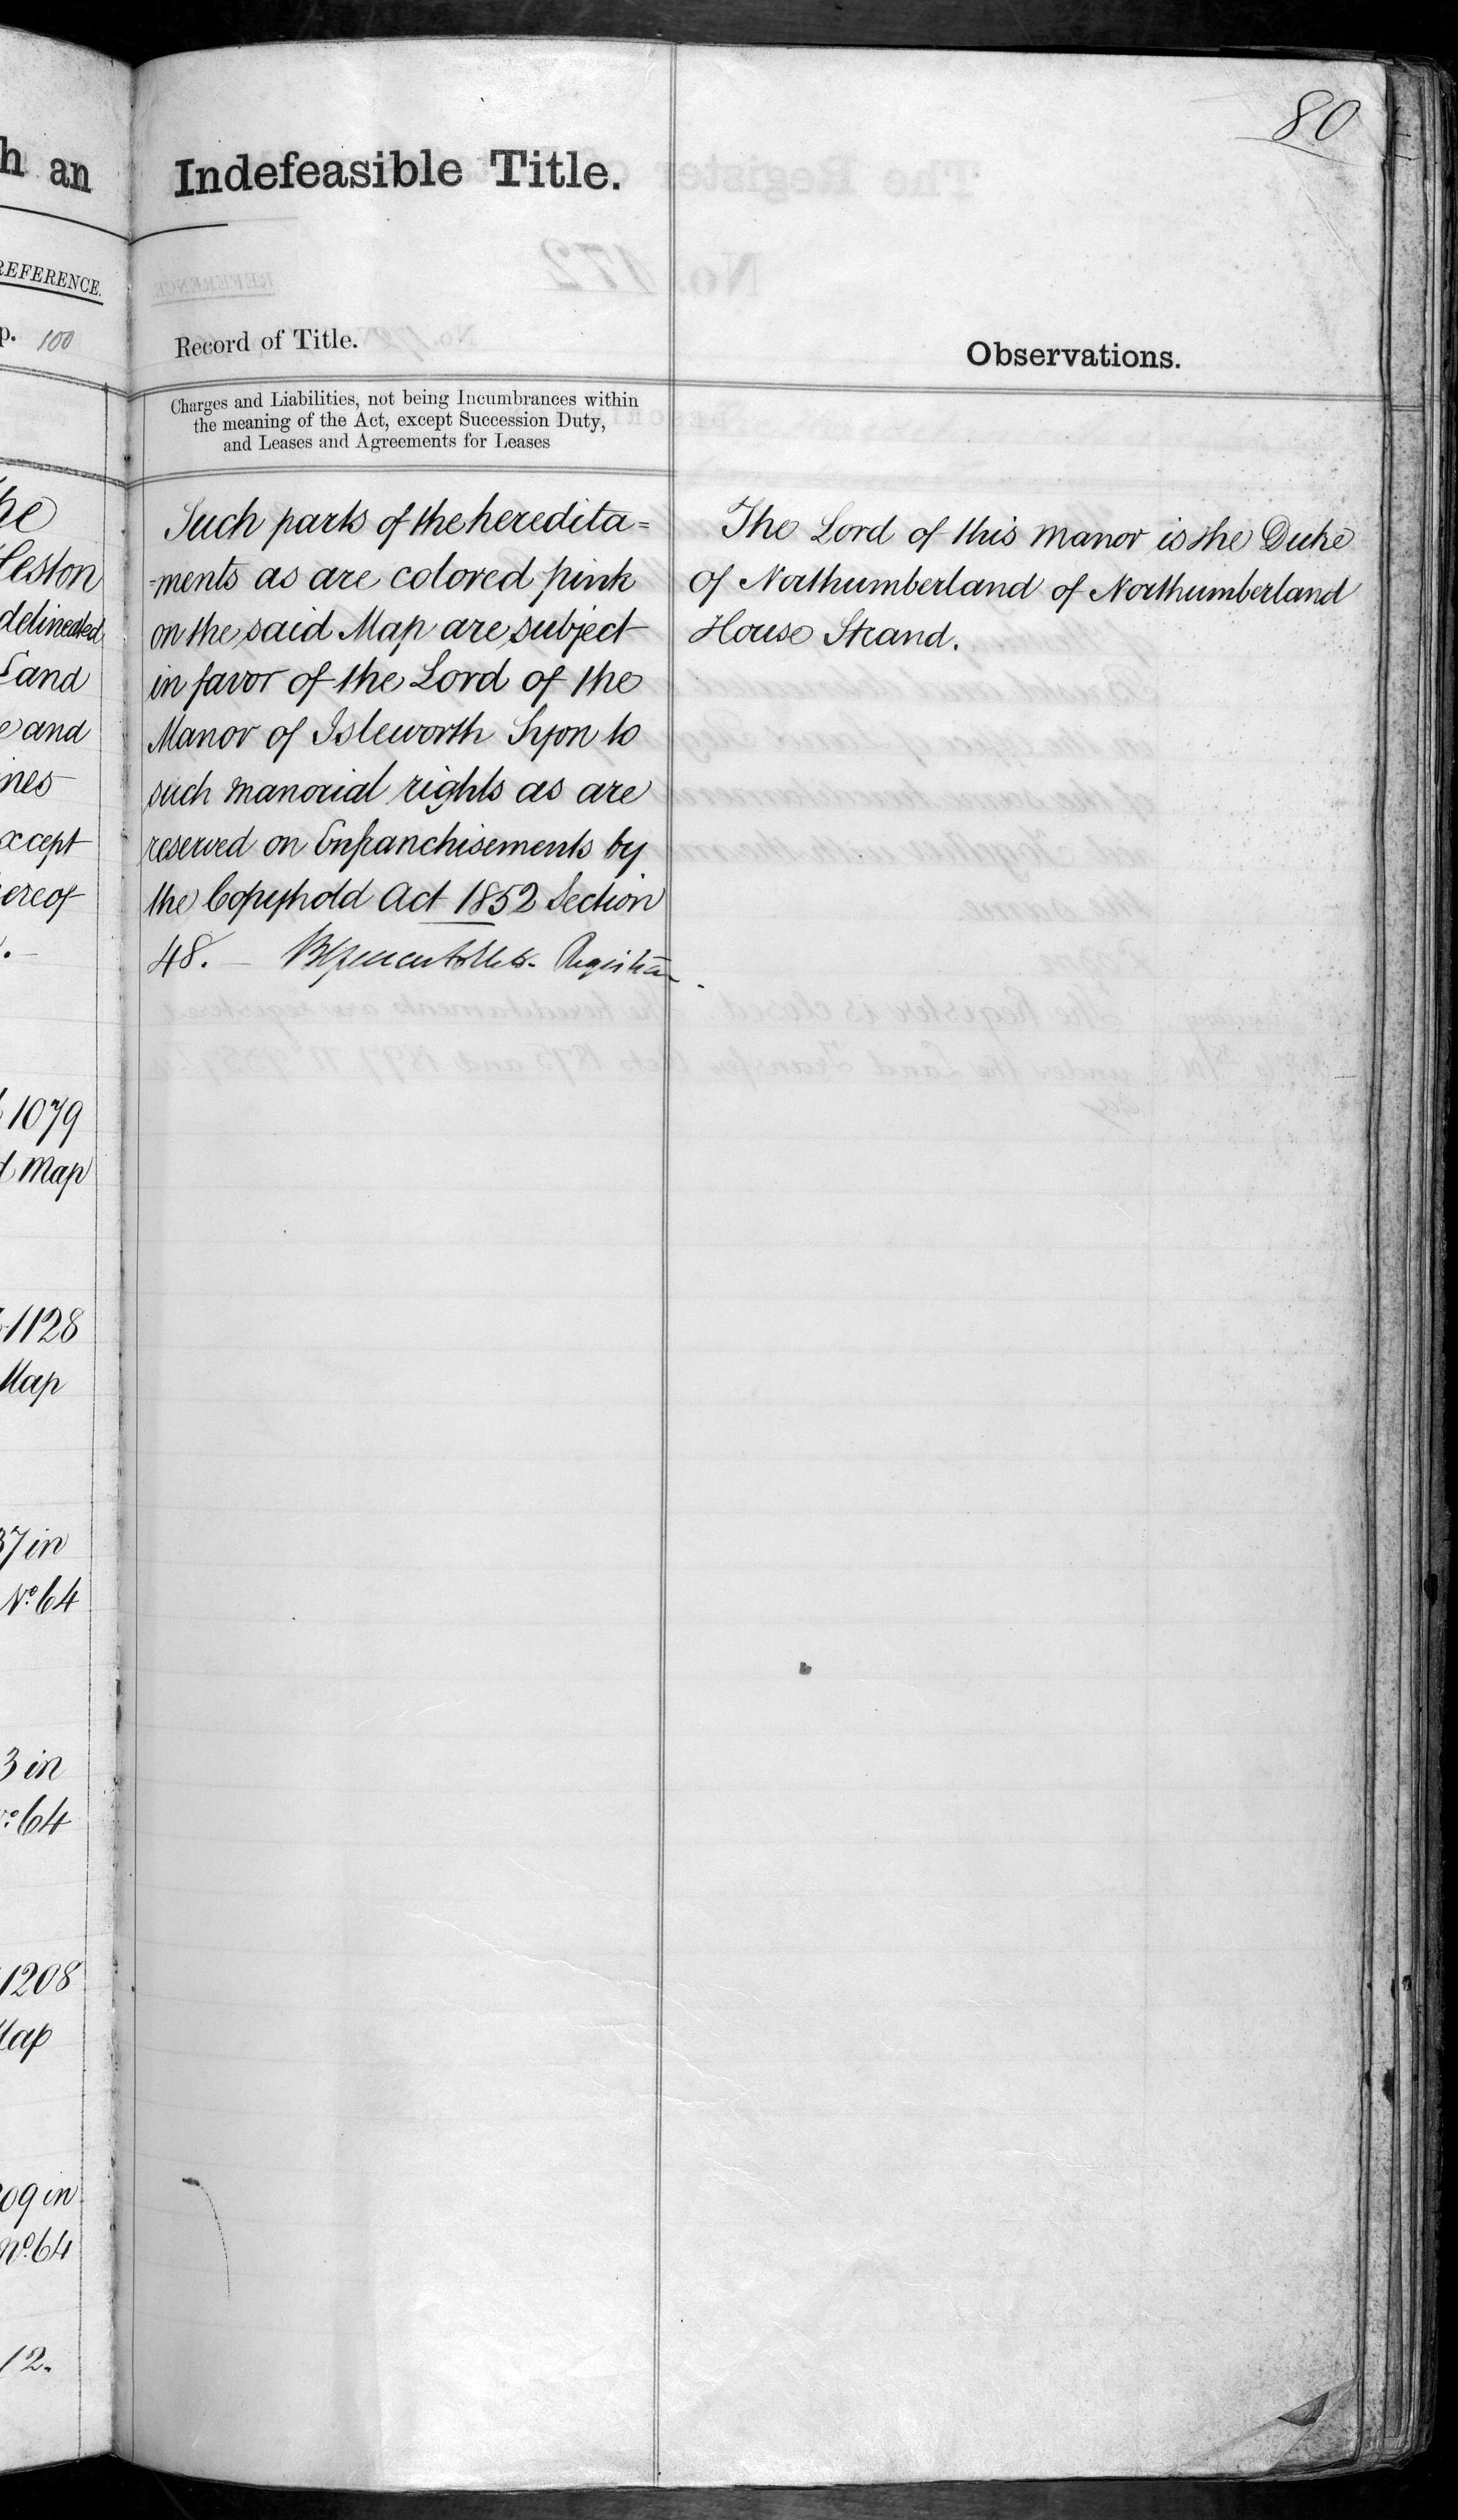 h an
REFERENCE.
p. 100
he
Heston
delineated
Land
e and
ines
except
hereof
1079
d Map
1128
Map
37 in
No. 64
3 in
No. 64
1208
Map
09 in
No. 64
12.
80
Indefeasible Title.
Record of Title.
Charges and Liabilities, not being Incumbrances within
the meaning of the Act, except Succession Duty,
and Leases and Agreements for Leases
Such parts of the heredita=
-ments as are colored pink
on the said Map are subject
in favor of the Lord of the
Manor of Isleworth Syon to
such manorial rights as are
reserved on Enfranchisements by
the Copyhold Act 1852 Section
48. — Registrar
Observations.
The Lord of this manor is the Duke
of Northumberland of Northumberland
House Strand.